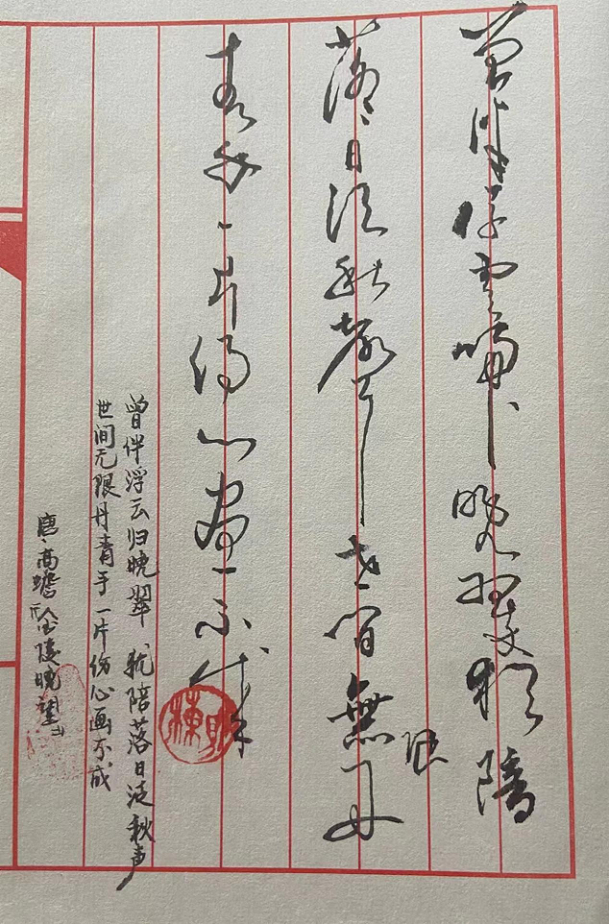 曾伴浮雲歸晚翠猶陪
落日泛秋聲世間無丹
限
青手一片傷心畫不成
曾伴浮云归晚翠 犹陪落日泛秋声
世间无限丹青手一片伤心画不成
唐高蟾《金陵晚望》